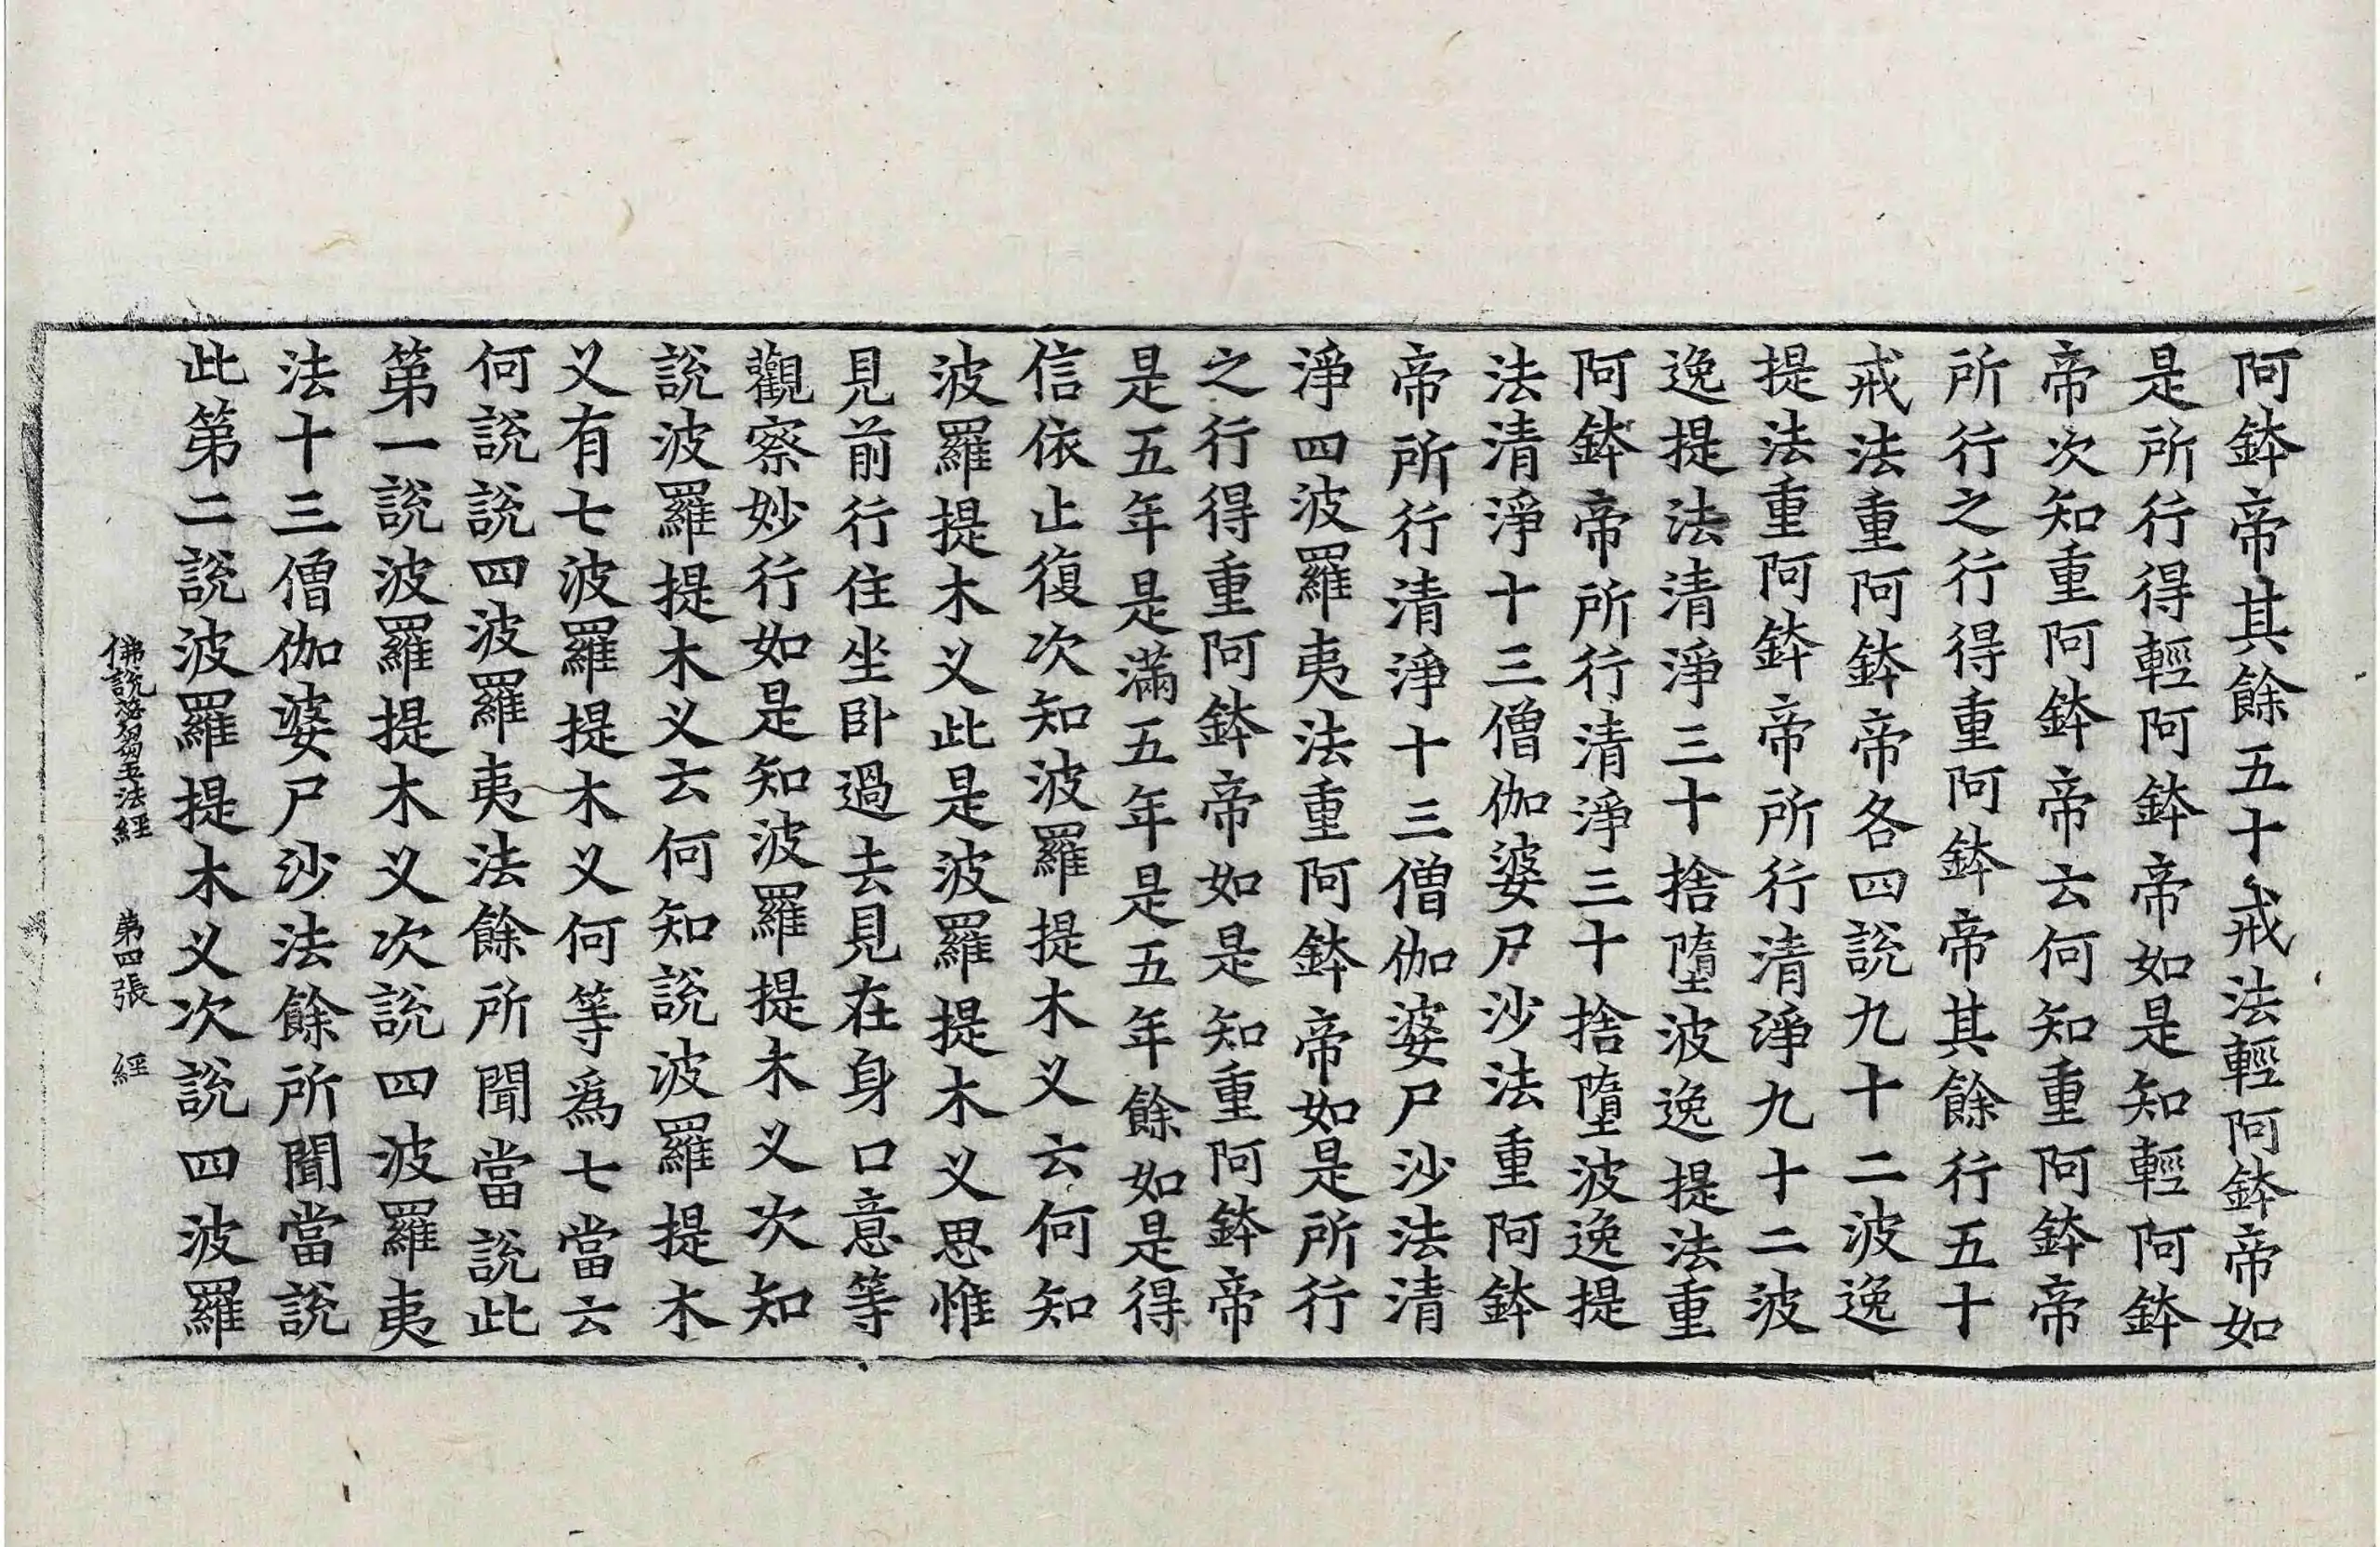 阿鉢帝其餘五十戒法輕阿鉢帝如
是所行得輕阿鉢帝如是知輕阿鉢
帝次知重阿鉢帝云何知重阿鉢帝
所行之行得重阿鉢帝其餘行五十
戒法重阿鉢帝各四說九十二波逸
提法重阿鉢帝所行清淨九十二波
逸提法清淨三十捨墮波逸提法重
阿鉢帝所行清淨三十捨墮波逸提
法清淨十三僧伽婆尸沙法重阿鉢
帝所行清淨十三僧伽婆尸沙法清
淨四波羅夷法重阿鉢帝如是所行
之行得重阿鉢帝如是知重阿鉢帝
是五年是滿五年是五年餘如是得
信依止復次知波羅提木义云何知
波羅提木义此是波羅提木义思惟
見前行住坐卧過去見在身口意等
觀察妙行如是知波羅提木义次知
說波羅提木义云何知說波羅提木
义有七波羅提木义何等爲七當云
何說說四波羅夷法餘所聞當說此
第一說波羅提木义次說四波羅夷
法十三僧伽婆尸沙法餘所聞當說
此第二說波羅提木义次說四波羅
佛說苾芻五法經 第四張 經